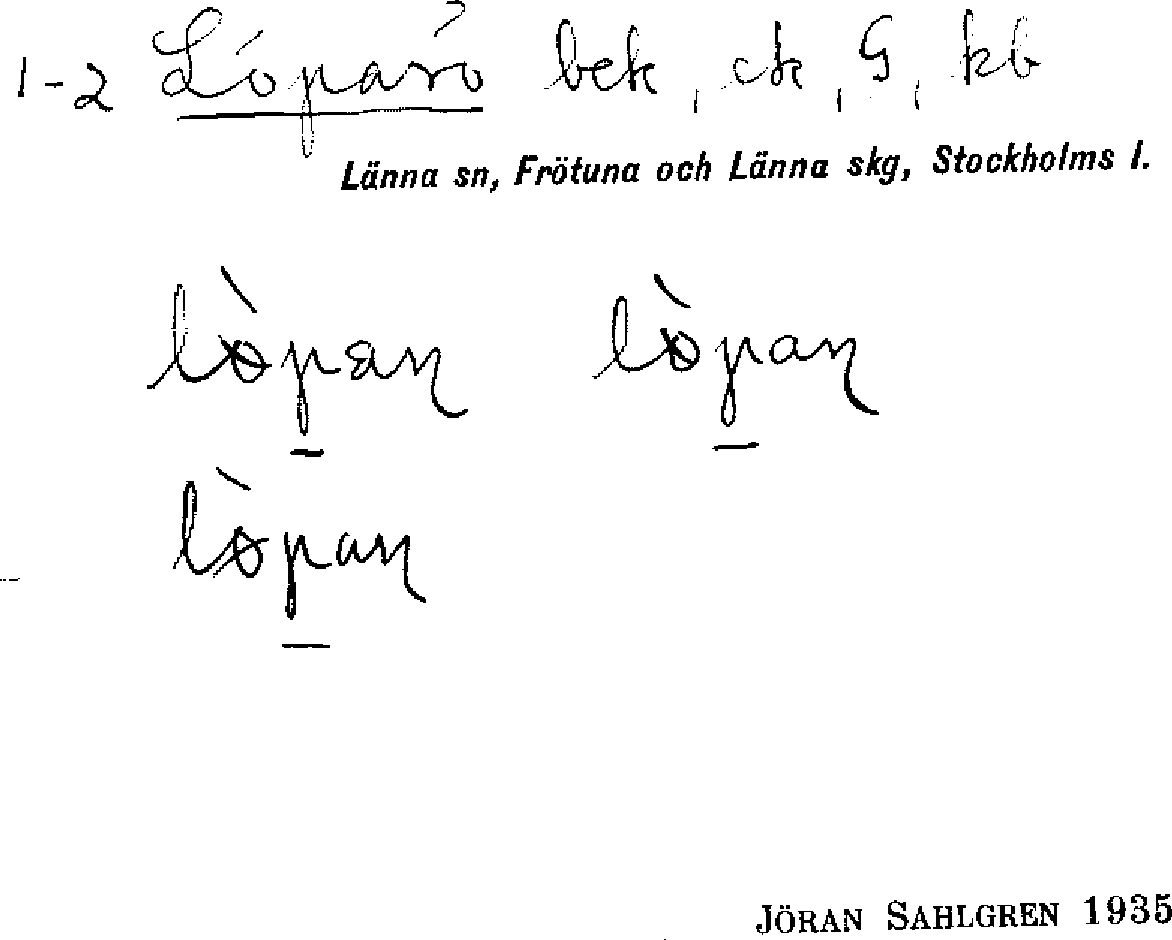 1-2 Löparö bek, ek, G, kb
Länna sn, Frötuna och Länna skg, Stockholms l.
lø̀pan lø̀pan
lø̀pan
JÖRAN SAHLGREN 1935